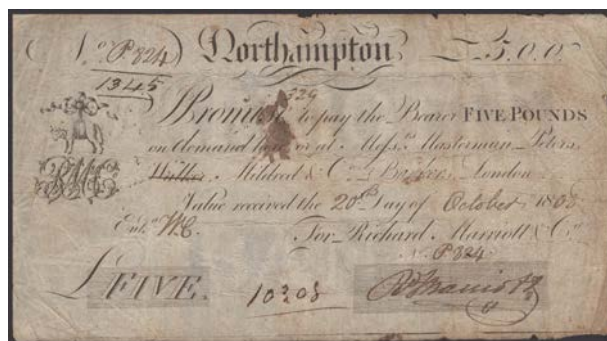 No. P.824 Northampton £5.0.0
1345
I Promise to pay the Bearer FIVE POUNDS
on demand here or at Messrs. Masterman Peters
Walker. Mildred & Co. Bankers London
Value received the 20th Day of October 1808
Entd. For Richard Marriott & Co.
No. P.824
£ FIVE.